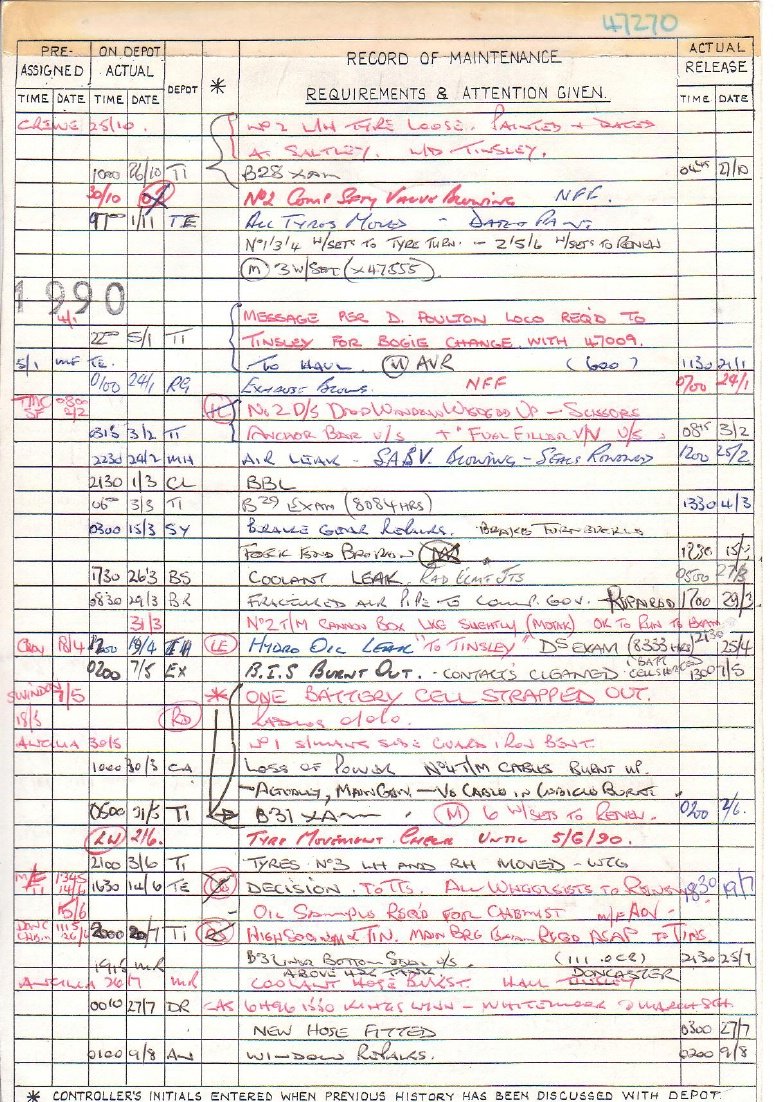 47270
PRE-ASSIGNED ON DEPOT ACTUAL DEPOT * RECORD OF MAINTENANCE REQUIREMENTS & ATTENTION GIVEN. ACTUAL RELEASE
TIME DATE TIME DATE TIME DATE
CREWE 25/10. Nº2 L/H TYRE LOOSE. PAINTED + DATED
AT SALTLEY. W/D TINSLEY.
1000 26/10 TI B28 XAM 0445 27/10
30/10 Nº2 COMP SFTY VALVE BLOWING NFF.
1/11 TE ALL TYRES MOVED - DATED PAINT
Nº1/3/4 W/SETS TO TYRE TURN. - 2/5/6 W/SETS TO RENEW
(M) 3 W/SET (X47555).
1990
4/1 MESSAGE PER D. POULTON LOCO REQ'D TO
2200 5/1 TI TINSLEY FOR BOGIE CHANGE WITH 47009.
5/1 MF TE. TO HAUL. AVR (600) 1130 21/1
0100 24/1 RG EXHAUST BLOWS. NFF 0700 24/1
0800 2/2 Nº2 D/S DROP WINDOW WEDGED UP - SCISSORS
0315 3/2 TI ANCHOR BAR U/S + "FUEL FILLER V/V U/S. 0815 3/2
2230 24/2 MH AIR LEAK - SABV. BLOWING - SEALS RENEWED 1200 25/2
2130 1/3 CL BBL
0600 3/3 TI B29 EXAM (8084 HRS) 1330 4/3
0300 15/3 SY BRAKE GEAR REPAIRS. BRAKE TURNBUCKLE
FORK END BROKEN 1230
1730 26/3 BS COOLANT LEAK. RAD ELMT JTS 0500 27/3
0830 29/3 BR FRACTURED AIR PIPE TO COMP. GOV. - REPAIRED 1700 29/3
31/3 Nº2 T/M CANNON BOX LKG SLIGHTLY (MOTAK) OK TO RUN TO EXAM
18/4 19/4 (LE) HYDRO OIL LEAK "TO TINSLEY" D5 EXAM (8333 HRS) 2130 25/4
0200 7/5 EX B.I.S BURNT OUT. - CONTACTS CLEANED (BATT CELL 1300 7/5
SWINDON 7/5 * ONE BATTERY CELL STRAPPED OUT.
18/5 (RD)
30/5 Nº1 S/MANS SIDE GUARD IRON BENT.
1000 30/5 CA LOSS OF POWER Nº4 T/M CABLES BURNT UP.
- ACTUALLY, MAIN GEN - VE CABLE IN CUBICLE BURNT
0500 31/5 TI B31 XAM (M) 6 W/SETS TO RENEW. 0200 2/6.
(LW) 2/6. TYRE MOVEMENT. CHECK UNTIL 5/6/90.
2100 3/6 TI TYRES Nº3 LH AND RH MOVED - WTG
M/E TI 1345 14/6 1630 14/6 TE DECISION. TO TTS. ALL WHEELSETS TO RENEW 1830 19/7
15/6 OIL SAMPLE REQ'D FOR CHEMIST M/F ADV -
DONC CHEM 1115 26/6 2000 20/7 TI HIGH SODIUM & TIN. MAIN BRG EXAM REQD ASAP TO TINS.
B3 LINER BOTTOM SEAL U/S (111.OCR) 2130 25/7
ABOVE 42K TANK
26/7 1915 MR COOLANT HOSE BURST. HAUL - DONCASTER
0010 27/7 DR CAS 6H96 1350 KINGS LYNN - WHITEMOOR
NEW HOSE FITTED 0300 27/7
0100 9/8 AN WINDOW REPAIRS. 0200 9/8
* CONTROLLER'S INITIALS ENTERED WHEN PREVIOUS HISTORY HAS BEEN DISCUSSED WITH DEPOT.